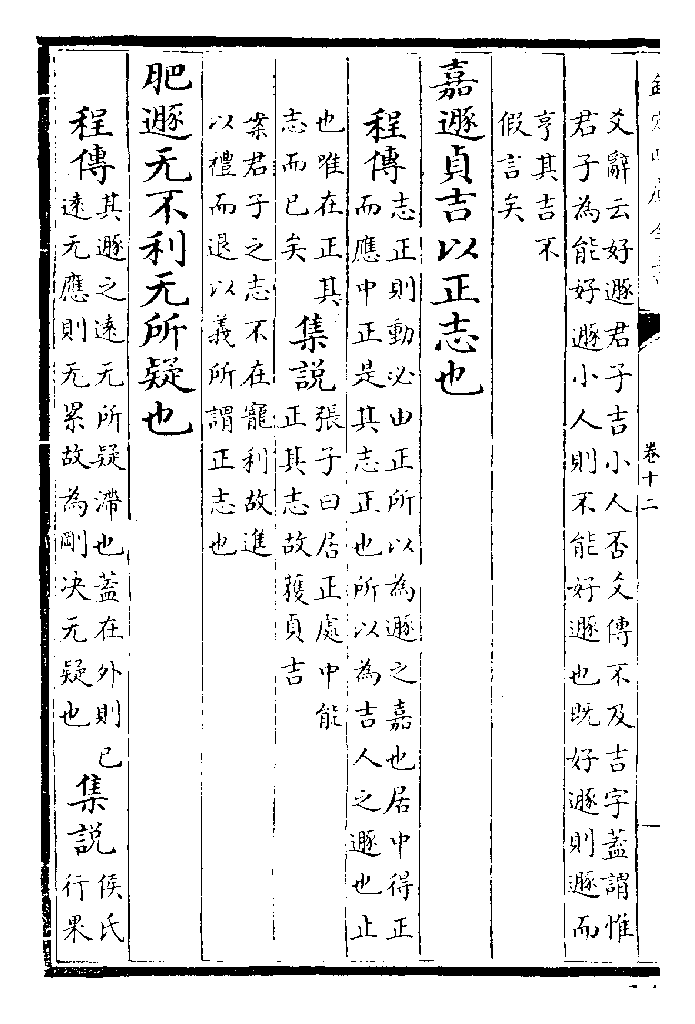 卷十二
爻辭云好遯君子吉小人否爻傳不及吉字蓋謂惟
君子為能好遯小人則不能好遯也既好遯則遯而
亨其吉不
假言矣
嘉遯貞吉以正志也
程傳
志正則動必由正所以為遯之嘉也居中得正
而應中正是其志正也所以為吉人之遯也止
也唯在正其
志而已矣
集説
張子曰居正處中能
正其志故獲貞吉
案君子之志不在寵利故進
以禮而退以義所謂正志也
肥遯无不利无所疑也
程傳
其遯之逺无所疑滯也蓋在外則已
逺无應則无累故為剛决无疑也
集説
侯氏
行果